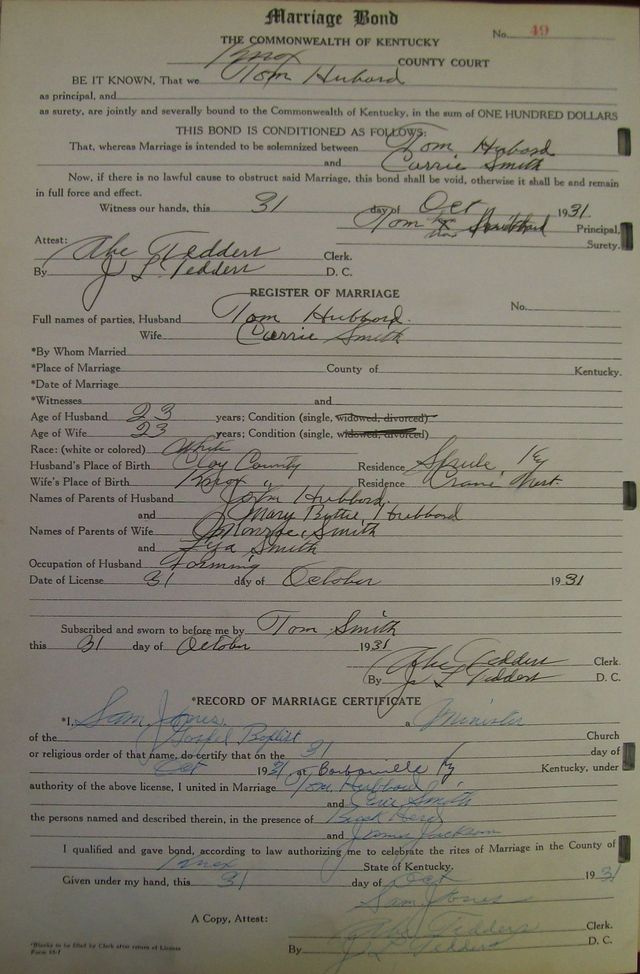 Marriage Bond
No. 49
THE COMMONWEALTH OF KENTUCKY
Knox COUNTY COURT
BE IT KNOWN, That we Tom Hubard
as principal, and
as surety, are jointly and severally bound to the Commonwealth of Kentucky, in the sum of ONE HUNDRED DOLLARS
THIS BOND IS CONDITIONED AS FOLLOWS:
That, whereas Marriage is intended to be solemnized between Tom Hubard
and Carrie Smith
Now, if there is no lawful cause to obstruct said Marriage, this bond shall be void, otherwise it shall be and remain
in full force and effect.
Witness our hands, this 31 day of Oct 1931
Tom Principal,
Surety.
Attest: Abe Tedders Clerk.
By J L Tedders D. C.
REGISTER OF MARRIAGE
No.
Full names of parties, Husband Tom Hubbard.
Wife Carrie Smith
*By Whom Married
*Place of Marriage County of Kentucky.
*Date of Marriage
*Witnesses and
Age of Husband 23 years; Condition (single, widowed, divorced)
Age of Wife 23 years; Condition (single, widowed, divorced)
Race: (white or colored) White
Husband's Place of Birth Clay County Residence Sprule, Ky
Wife's Place of Birth Knox " Residence Crane Nest.
Names of Parents of Husband John Hubbard,
and Mary Hubbard
Names of Parents of Wife Monroe Smith
and Liza Smith
Occupation of Husband Farming
Date of License 31 day of October 1931
Subscribed and sworn to before me by Tom Smith
this 31 day of October 1931
Abe Tedders Clerk.
By J L Tedders D. C.
*RECORD OF MARRIAGE CERTIFICATE
*I, Sam Jones, a Minister
of the Gospel Baptist Church
or religious order of that name, do certify that on the 31 day of
Oct 1931 at Barbourville Ky Kentucky, under
authority of the above license, I united in Marriage Tom Hubbard
and Smith
the persons named and described therein, in the presence of
and James Jackson
I qualified and gave bond, according to law authorizing me to celebrate the rites of Marriage in the County of
Knox State of Kentucky.
Given under my hand, this 31 day of Oct 1931
Sam Jones
A Copy, Attest: Abe Tedders Clerk.
By J L Tedders D. C.
*Blanks to be filled by Clerk after return of License